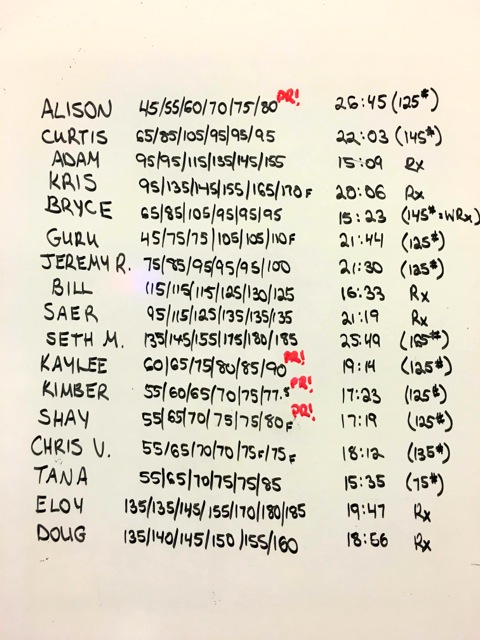 ALISON 45/55/60/70/75/80 PR! 26:45 (125#)
CURTIS 65/85/105/95/95/95 22:03 (145#)
ADAM 95/95/115/135/145/155 15:09 Rx
KRIS 95/135/145/155/165/170F 20:06 Rx
BRYCE 65/85/105/95/95/95 15:23 (145#=WRx)
GURU 45/75/75/105/105/110F 21:44 (125#)
JEREMY R. 75/85/95/95/95/100 21:30 (125#)
BILL 115/115/115/125/130/125 16:33 Rx
SAER 95/115/125/135/135/135 21:19 Rx
SETH M. 135/145/155/175/180/185 25:49 (165#)
KAYLEE 60/65/75/80/85/90 PR! 19:14 (125#)
KIMBER 55/60/65/70/75/77.5 PR! 17:23 (125#)
SHAY 55/65/70/75/75/80F PR! 17:19 (125#)
CHRIS V. 55/65/70/70/75F/75F 18:12 (135#)
TANA 55/65/70/75/75/85 15:35 (75#)
ELOY 135/135/145/155/170/180/185 19:47 Rx
DOUG 135/140/145/150/155/160 18:56 Rx